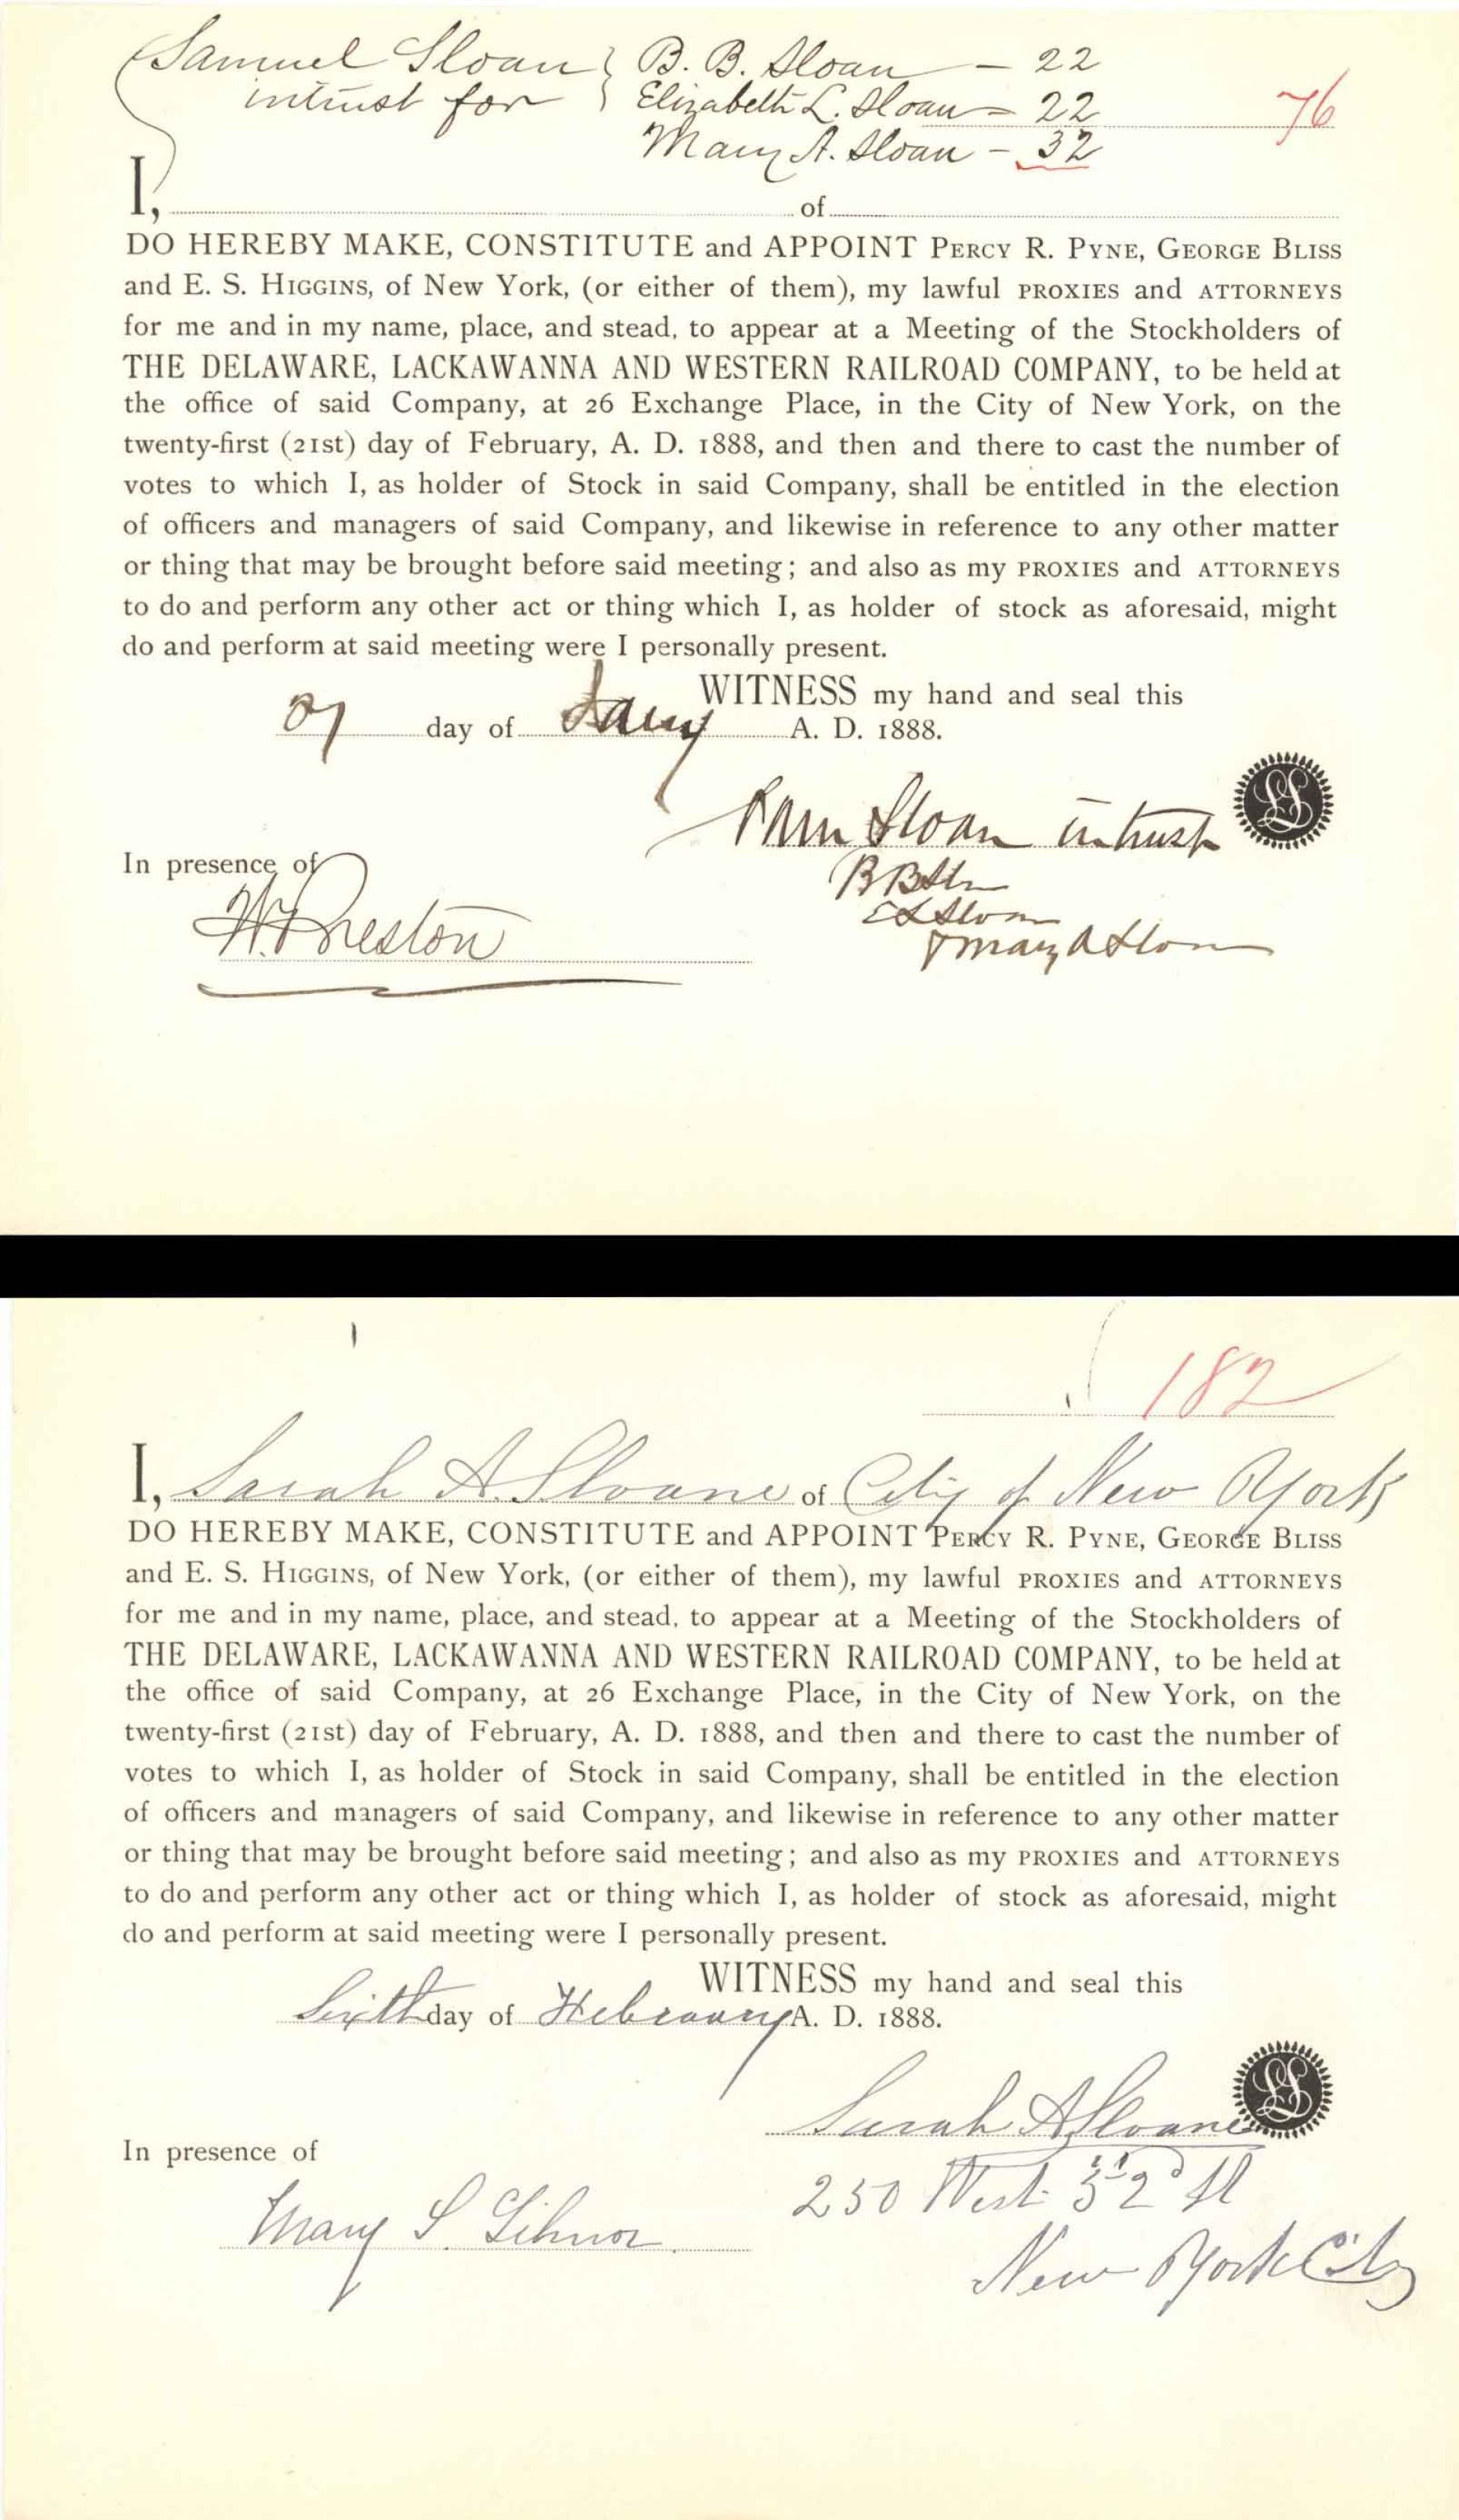 Samuel Sloan } B. B. Sloan — 22
intrust for } Elizabeth L. Sloan — 22 76
Mary A. Sloan — 32
I, of
DO HEREBY MAKE, CONSTITUTE and APPOINT PERCY R. PYNE, GEORGE BLISS
and E. S. HIGGINS, of New York, (or either of them), my lawful PROXIES and ATTORNEYS
for me and in my name, place, and stead, to appear at a Meeting of the Stockholders of
THE DELAWARE, LACKAWANNA AND WESTERN RAILROAD COMPANY, to be held at
the office of said Company, at 26 Exchange Place, in the City of New York, on the
twenty-first (21st) day of February, A. D. 1888, and then and there to cast the number of
votes to which I, as holder of Stock in said Company, shall be entitled in the election
of officers and managers of said Company, and likewise in reference to any other matter
or thing that may be brought before said meeting; and also as my PROXIES and ATTORNEYS
to do and perform any other act or thing which I, as holder of stock as aforesaid, might
do and perform at said meeting were I personally present.
WITNESS my hand and seal this
day of Jany A. D. 1888.
Sam Sloan intrust LS
In presence of
B B Sloan
E L Sloan
W. Preston
& Mary A Sloan
182
I, Sarah A. Sloane of City of New York
DO HEREBY MAKE, CONSTITUTE and APPOINT PERCY R. PYNE, GEORGE BLISS
and E. S. HIGGINS, of New York, (or either of them), my lawful PROXIES and ATTORNEYS
for me and in my name, place, and stead, to appear at a Meeting of the Stockholders of
THE DELAWARE, LACKAWANNA AND WESTERN RAILROAD COMPANY, to be held at
the office of said Company, at 26 Exchange Place, in the City of New York, on the
twenty-first (21st) day of February, A. D. 1888, and then and there to cast the number of
votes to which I, as holder of Stock in said Company, shall be entitled in the election
of officers and managers of said Company, and likewise in reference to any other matter
or thing that may be brought before said meeting; and also as my PROXIES and ATTORNEYS
to do and perform any other act or thing which I, as holder of stock as aforesaid, might
do and perform at said meeting were I personally present.
WITNESS my hand and seal this
Sixth day of February A. D. 1888.
Sarah A Sloane LS
In presence of
250 West 32d St
Mary S.
New York City